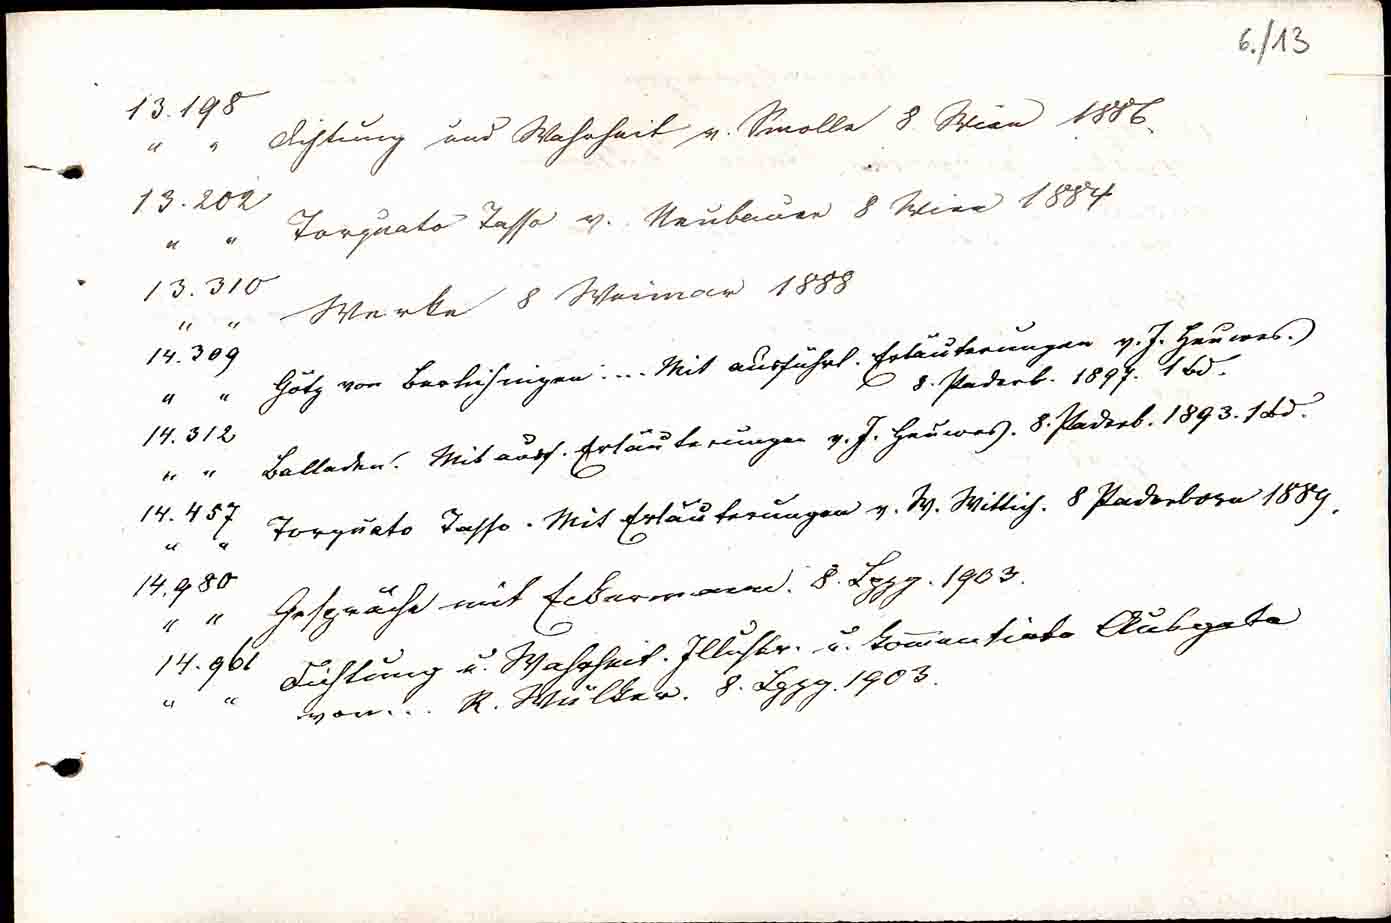 6./13
13.198
" " Dichtung und Wahrheit v. Smolle 8 Wien 1886.
13.202
" " Torquato Tasso v. Neubauer 8 Wien 1884
13.310
" " Werke 8 Weimar 1888
14.309
" " Götz von Berlichingen .... Mit ausführl. Erläuterungen v. J. Heuwes.
8. Paderb. 1897. 1 Bd.
14.312
" " Balladen. Mit ausf. Erläuterungen v. J. Heuwes. 8. Paderb. 1893. 1 Bd.
14.457
" " Torquato Tasso. Mit Erläuterungen v. W. Wittich. 8 Paderborn 1889.
14.980
" " Gespräche mit Eckermann. 8. Lpzg. 1903.
14.961
" " Dichtung u. Wahrheit. Illustr. u. kom̄entierte Ausgabe
von... R. Wülker. 8. Lpzg. 1903.